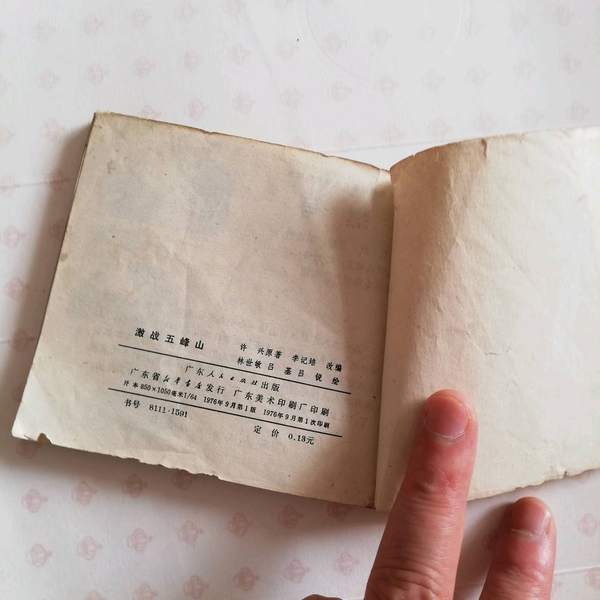 激战五峰山
许 兴原著 李记培 改编
林世敏 吕 基吕 锐 绘
广东人民出版社出版
广东省新华书店发行 广东美术印刷厂印刷
开本850×1050毫米1/64 1976年9月第1版 1976年9月第1次印刷
书号 8111·1591 定价 0.13元